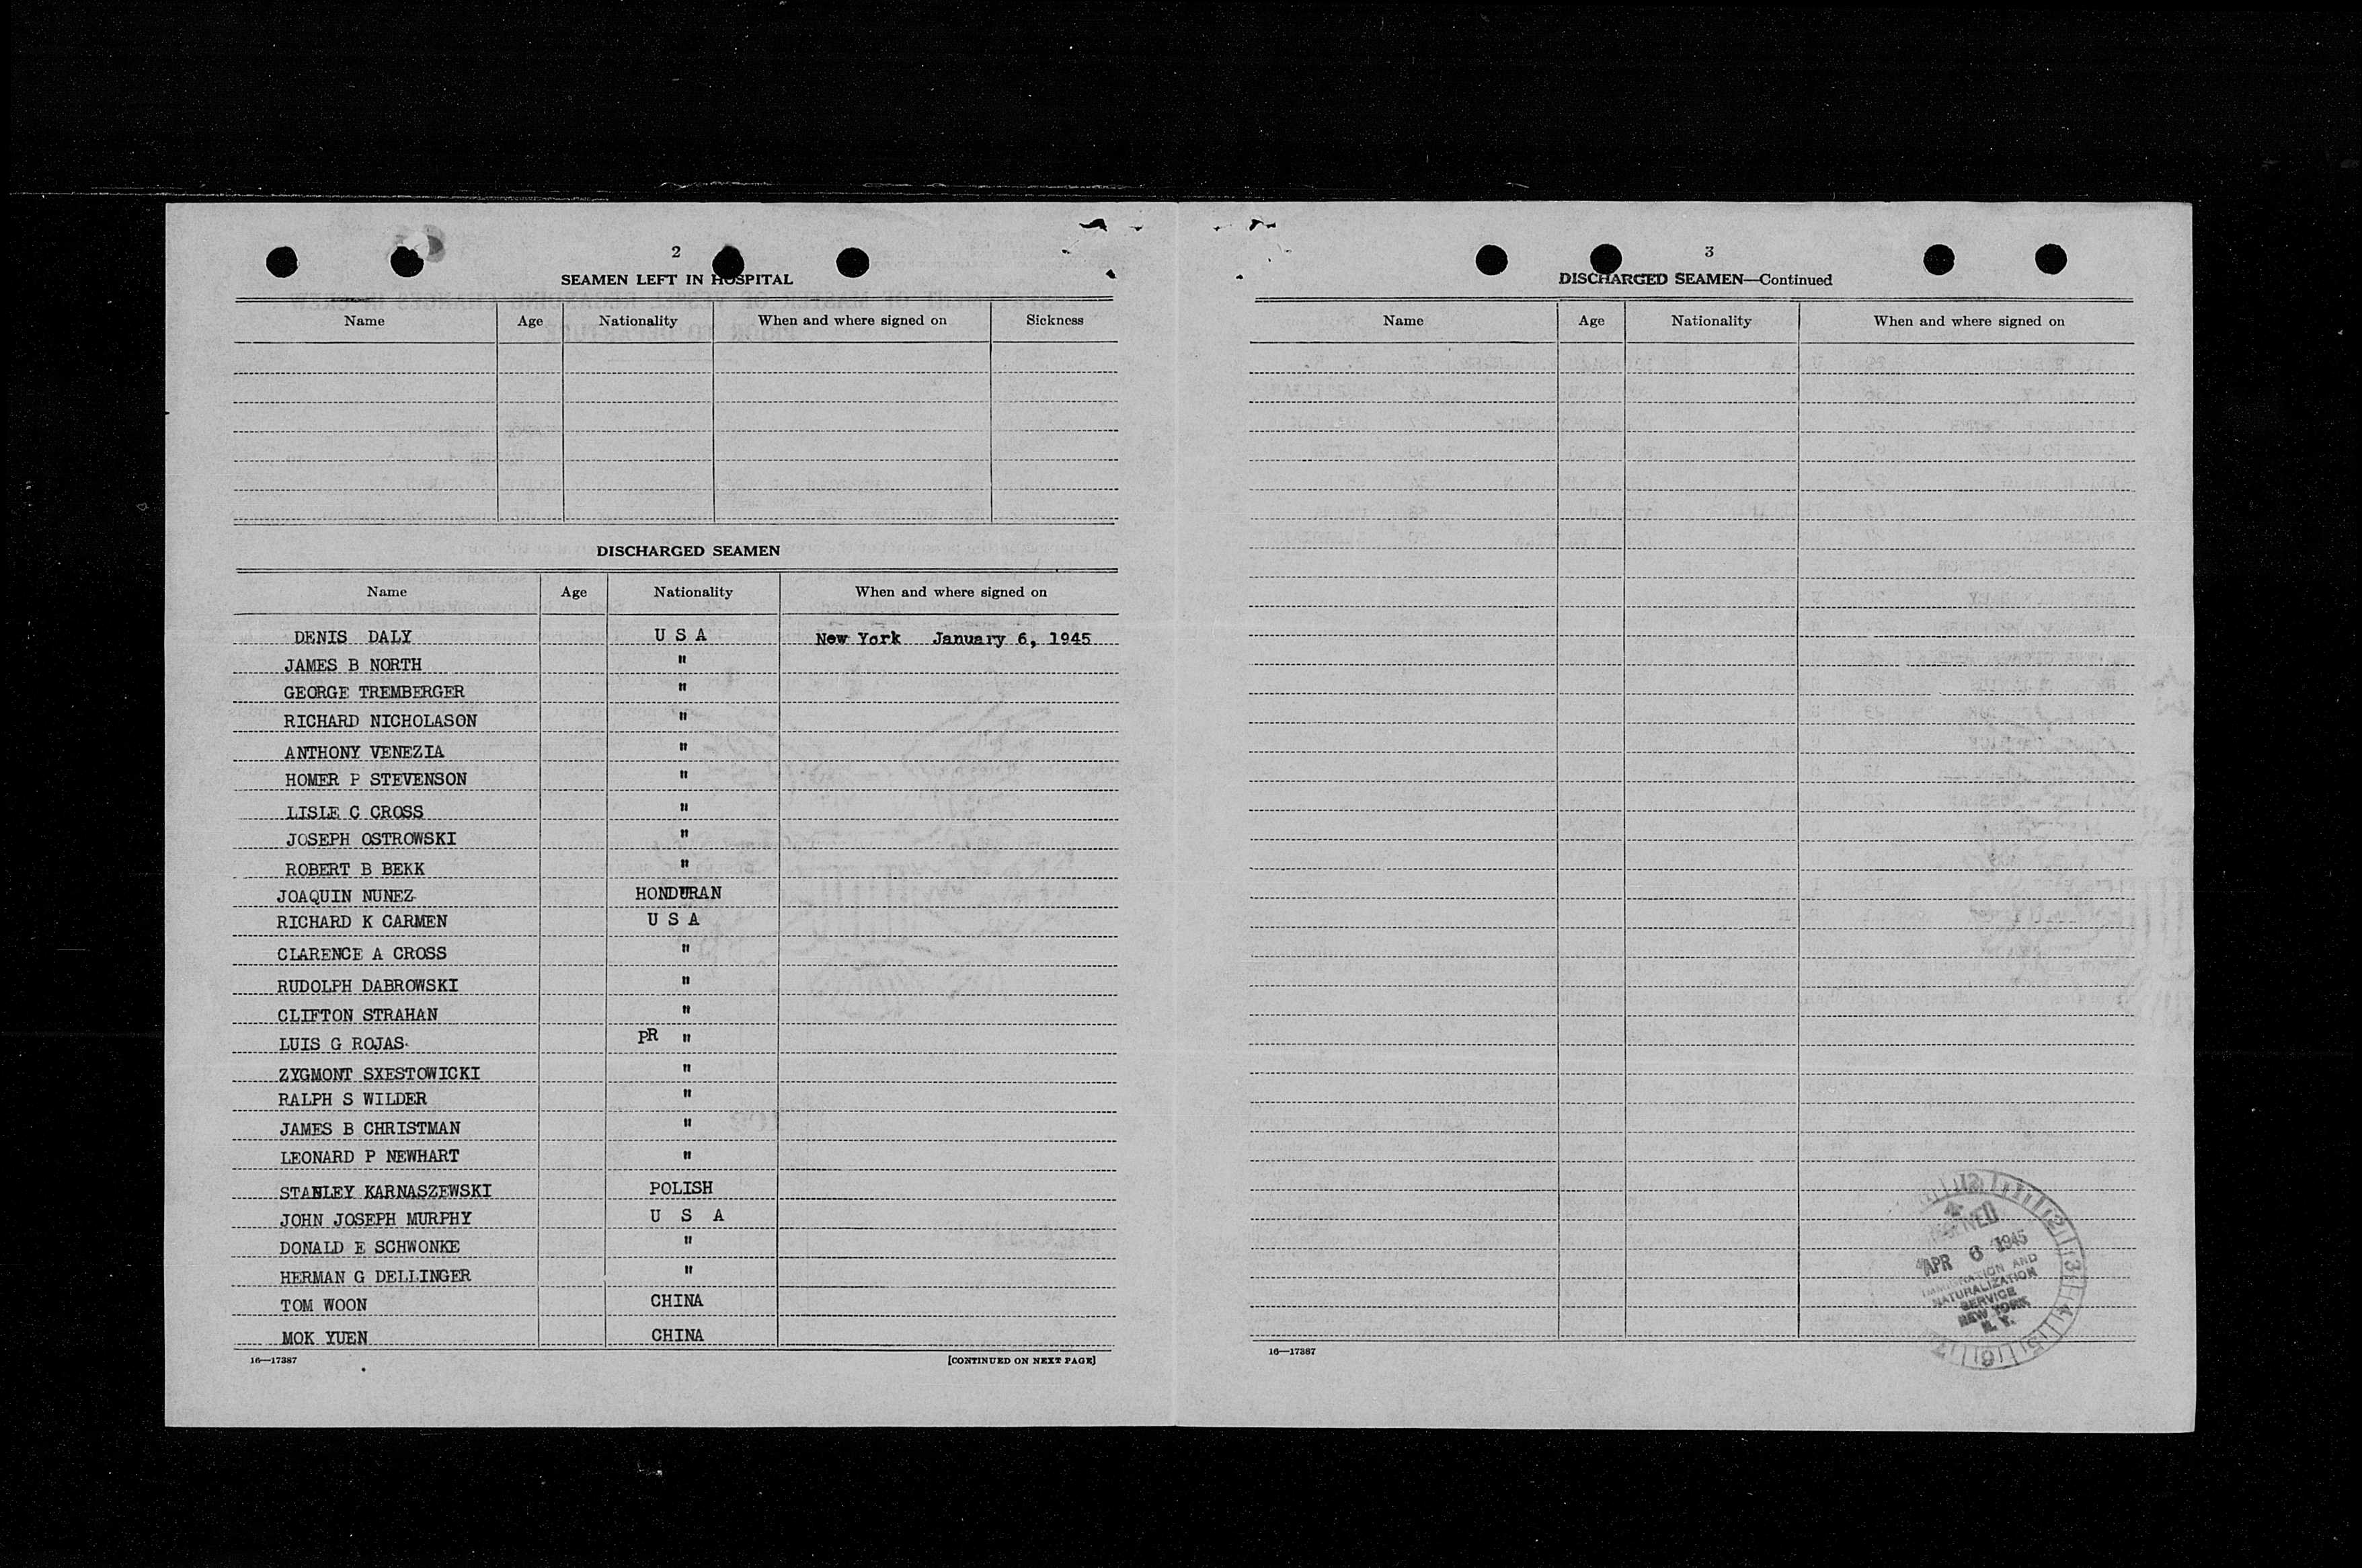 2
SEAMEN LEFT IN HOSPITAL
Name Age Nationality When and where signed on Sickness
DISCHARGED SEAMEN
Name Age Nationality When and where signed on
DENIS DALY U S A New York January 6, 1945
JAMES B NORTH "
GEORGE TREMBERGER "
RICHARD NICHOLASON "
ANTHONY VENEZIA "
HOMER P STEVENSON "
LISLE C CROSS "
JOSEPH OSTROWSKI "
ROBERT B BEKK "
JOAQUIN NUNEZ HONDURAN
RICHARD K CARMEN U S A
CLARENCE A CROSS "
RUDOLPH DABROWSKI "
CLIFTON STRAHAN "
LUIS G ROJAS PR "
ZYGMONT SXESTOWICKI "
RALPH S WILDER "
JAMES B CHRISTMAN "
LEONARD P NEWHART "
STANLEY KARNASZEWSKI POLISH
JOHN JOSEPH MURPHY U S A
DONALD E SCHWONKE "
HERMAN G DELLINGER "
TOM WOON CHINA
MOK YUEN CHINA
16—17387 [CONTINUED ON NEXT PAGE]
3
DISCHARGED SEAMEN—Continued
Name Age Nationality When and where signed on
APR 6 1945
IMMIGRATION AND
NATURALIZATION
SERVICE
NEW YORK
N. Y.
16—17387